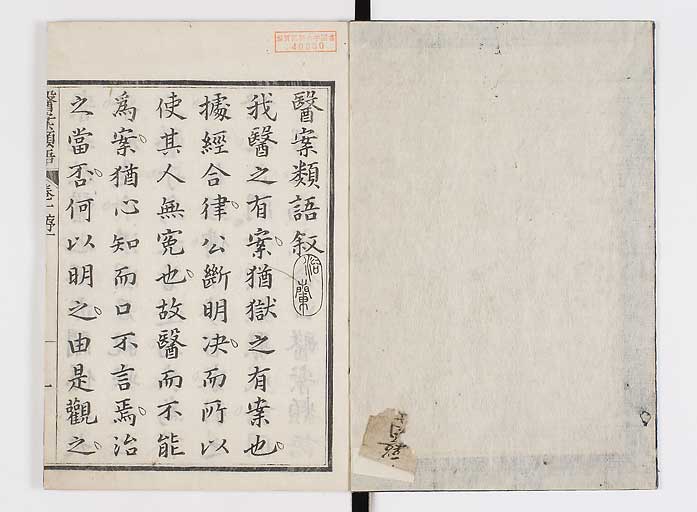 醫案類語叙
我醫之有案。猶獄之有案也。
據經合律。公斷明决。而所以
使其人無寃也。故醫而不能
爲案。猶心知而口不言焉。治
之當否。何以明之。由是觀之。
醫案類語
卷一序
一
40000